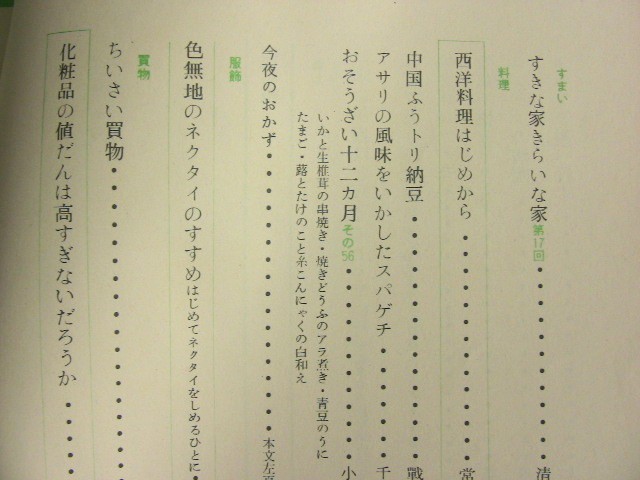 すまい
すきな家きらいな家 第17回・・・・・・・・清
料理
西洋料理はじめから・・・・・・・・・・・・常
中国ふうトリ納豆・・・・・・・・・・・・・戰
アサリの風味をいかしたスパゲチ・・・・・・千
おそうざい十二カ月 その56・・・・・・・・小
いかと生椎茸の串焼き・焼きどうふのアラ煮き・青豆のうに
たまご・蕗とたけのこと糸こんにゃくの白和え
今夜のおかず・・・・・・・・・・・・・・・本文左
服飾
色無地のネクタイのすすめ はじめてネクタイをしめるひとに・
買物
ちいさい買物・・・・・・・・・・・・・・・・・
化粧品の値だんは高すぎないだろうか・・・・・